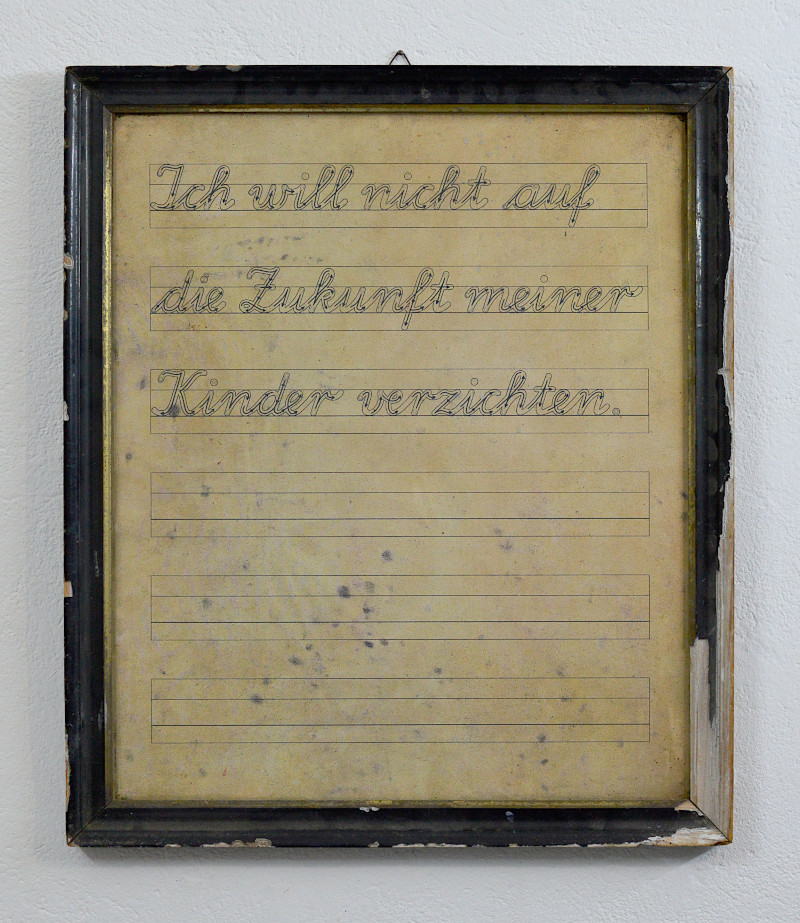 Ich will nicht auf
die Zukunft meiner
Kinder verzichten.